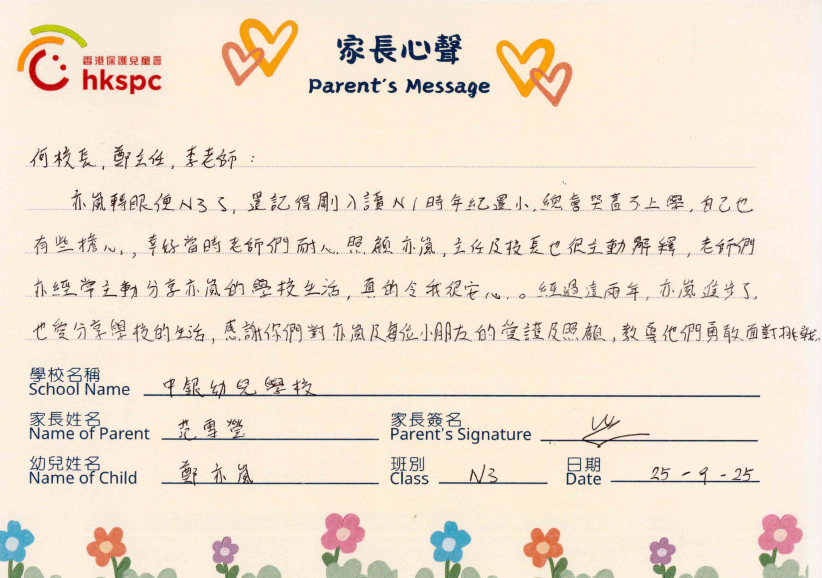 香港保護兒童會
hkspc
家長心聲
Parent's Message
何校長, 鄭主任, 李老師 :
亦嵐轉眼便N3了, 還記得剛入讀N1時年紀還小, 總會哭喜不上學, 自己也
有些擔心, 幸好當時老師們耐心照顧亦嵐, 主任及校長也很主動解釋, 老師們
亦經常主動分享亦嵐的學校生活, 真的令我很安心。經過這兩年, 亦嵐進步了,
也愛分享學校的生活, 感謝你們對亦嵐及每位小朋友的愛護及照顧, 教導他們勇敢面對挑戰
學校名稱
School Name 中銀幼兒學校
家長姓名
Name of Parent 范專瑩
家長簽名
Parent's Signature
幼兒姓名
Name of Child 鄭亦嵐
班別
Class N3
日期
Date 25-9-25